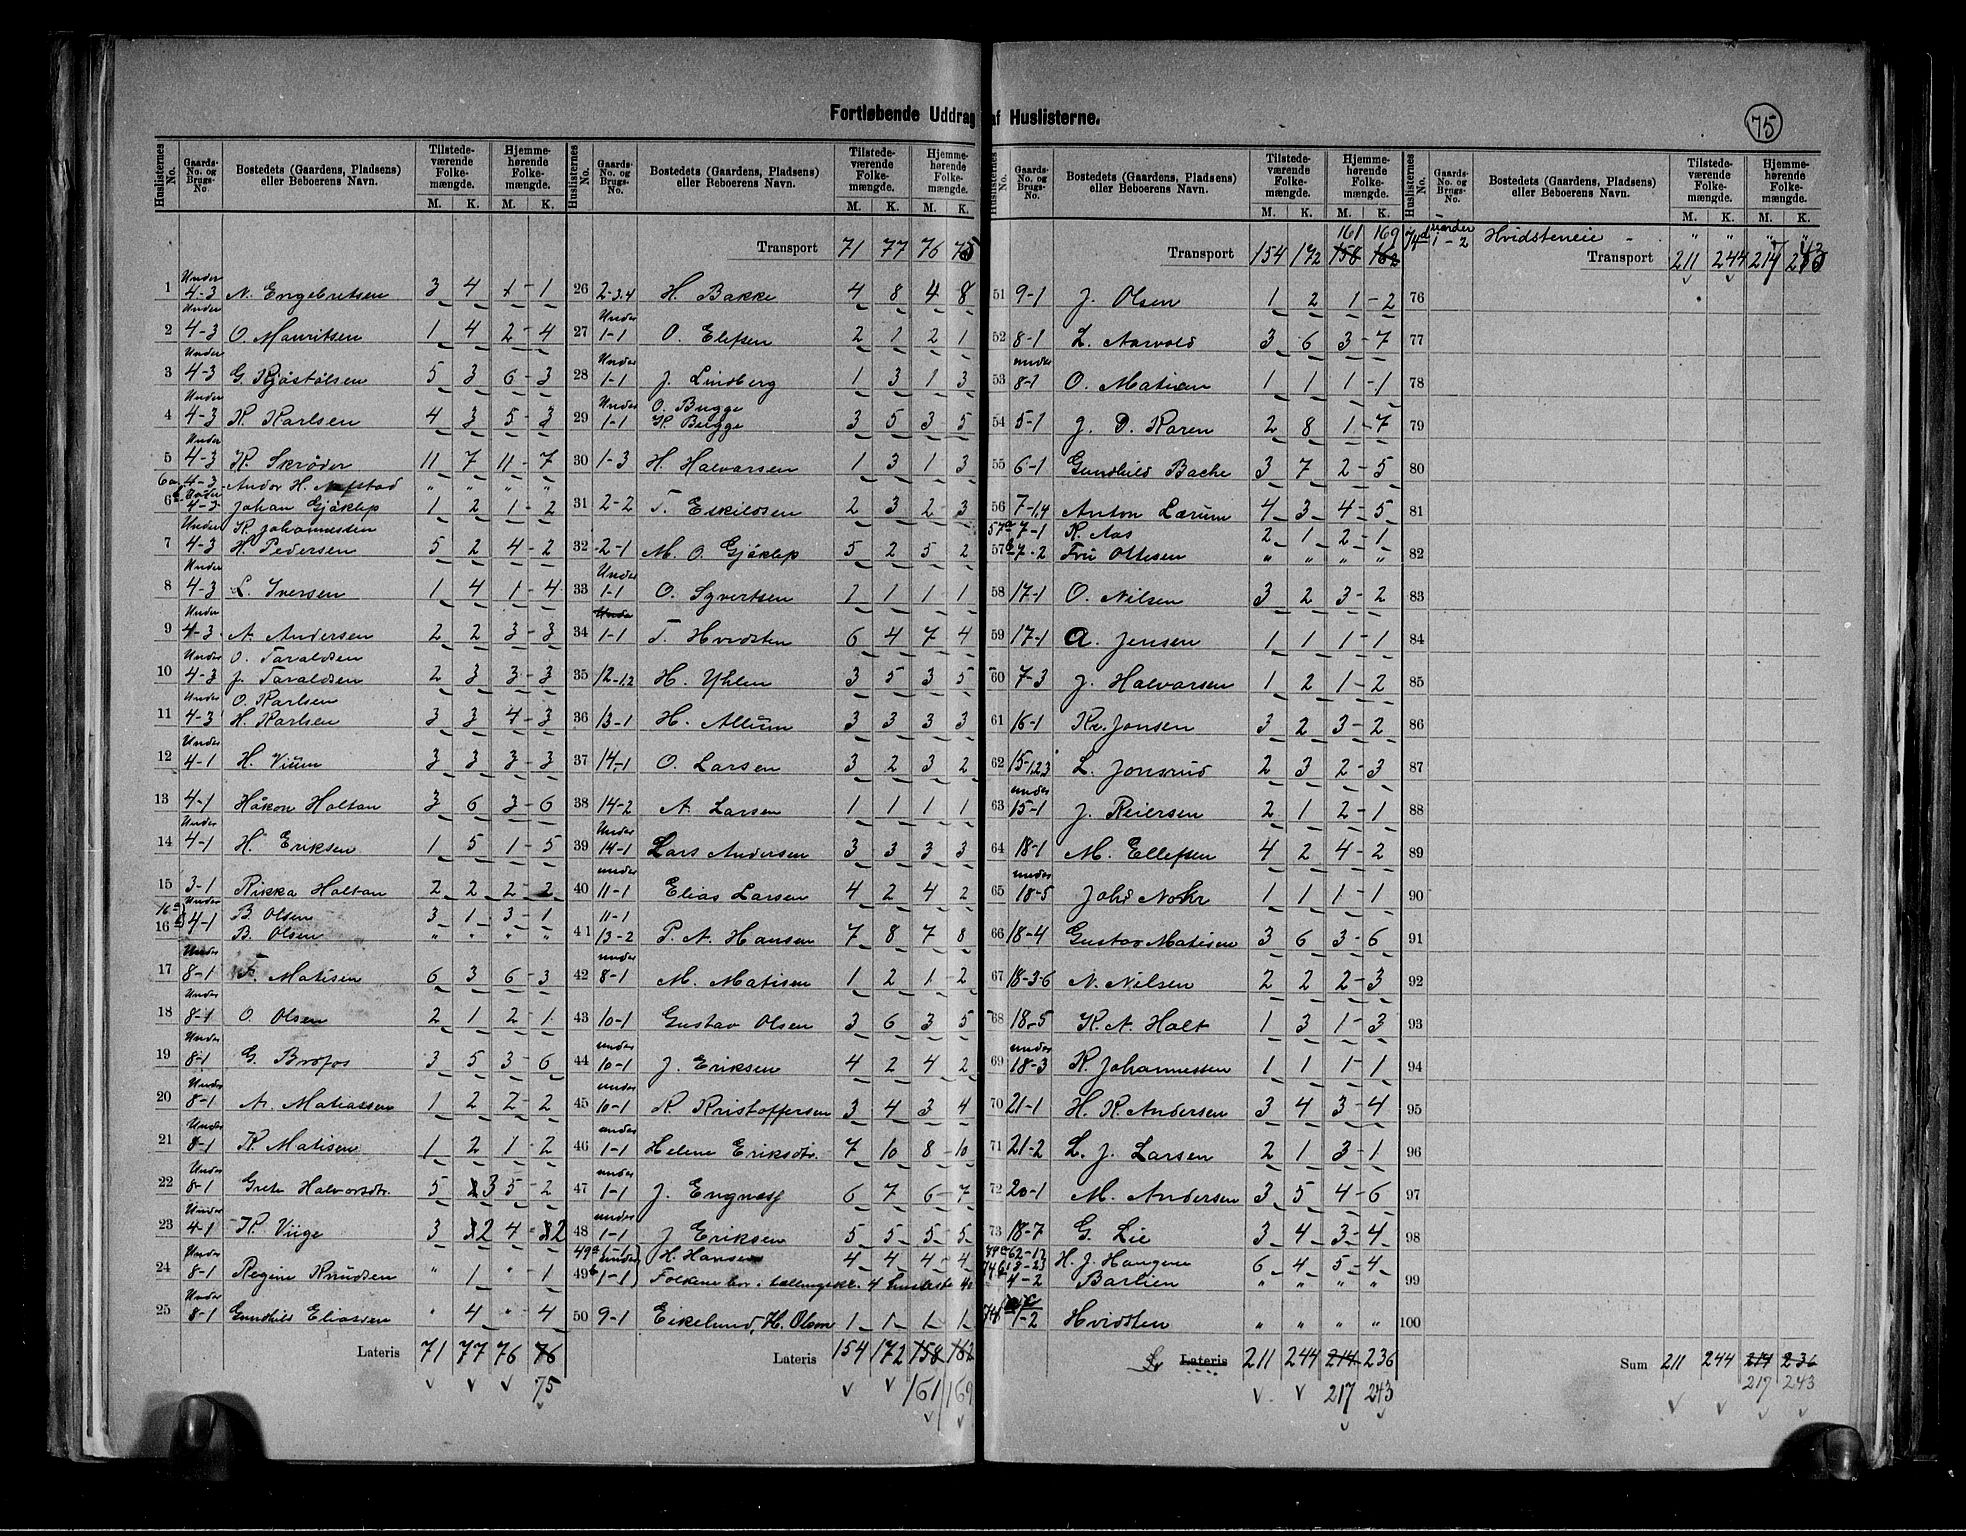 Fortløbende Uddrag af Huslisterne.
75
Huslisternes No. Gaards-No. og Brugs-No. Bostedets (Gaardens, Pladsens) eller Beboerens Navn. Tilstedeværende Folkemængde. M. K. Hjemmehørende Folkemængde. M. K.
1 Under 4-3 N. Engebretsen 3 4 1 - 1
2 Under 4-3 O. Mauritsen 1 4 2 - 4
3 Under 4-3 G. Kjøstolsen 5 3 6 - 3
4 Under 4-3 K. Karlsen 4 3 5 - 3
5 Under 4-3 K. Skrøder 11 7 11 - 7
6a 4-3 Andor H. Aafstad " " " "
6b Under 4-3 Johan Gjøklep 1 2 1 - 2
Under K. Johannessen
7 4-3 H. Pedersen 5 2 4 - 2
8 Under 4-3 L. Iversen 1 4 1 - 4
9 Under 4-3 A. Andersen 2 2 3 - 3
Under O. Taraldsen
10 4-3 J. Taraldsen 2 3 3 - 3
Under O. Karlsen
11 4-3 H. Karlsen 3 3 4 - 3
12 Under 4-1 H. Vium 3 3 3 - 3
13 4-1 Håkon Holtan 3 6 3 - 6
14 Under 4-1 H. Eriksen 1 5 1 - 5
15 3-1 Rikka Holtan 2 2 2 - 2
16a Under 4-1 B. Olsen 3 1 3 - 1
16b B. Olsen " " " "
17 Under 8-1 F. Matisen 6 3 6 - 3
18 Under 8-1 O. Olsen 2 1 2 - 1
19 Under 8-1 G. Brofos 3 5 3 - 6
20 Under 8-1 A. Matiassen 1 2 2 - 2
21 Under 8-1 K. Matisen 1 2 1 - 2
22 Under 8-1 Grete Halvorsdtr. 5 3 5 - 2
23 Under 4-1 K. Viige 3 2 4 - 2
24 Under 8-1 Regine Knudsen " 1 " - 1
25 Under 8-1 Gundhild Eliasden " 4 " - 4
Lateris 71 77 76 76
75
Huslisternes No. Gaards-No. og Brugs-No. Bostedets (Gaardens, Pladsens) eller Beboerens Navn. Tilstedeværende Folkemængde. M. K. Hjemmehørende Folkemængde. M. K.
Transport 71 77 76 75
26 2-3.4 H. Bakke 4 8 4 8
27 Under 1-1 O. Elefsen 2 1 2 1
28 Under 1-1 J. Lindberg 1 3 1 3
Under O. Bugge
29 1-1 K. Bugge 3 5 3 5
30 1-3 H. Halvarsen 1 3 1 3
31 2-2 T. Eskildsen 2 3 2 - 3
32 2-1 M. O. Gjøklep 5 2 5 2
33 Under 1-1 O. Syvertsen 1 1 1 1
34 Under 1-1 T. Hvidsten 6 4 7 4
35 12-1,2 H. Yhlen 3 5 3 5
36 13-1 H. Allum 3 3 3 3
37 14-1 O. Larsen 3 2 3 2
38 14-2 A. Larsen 1 1 1 1
39 Under 14-1 Lars Andersen 3 3 3 3
40 under 11-1 Elias Larsen 4 2 4 2
11-1
41 13-2 P. A. Hansen 7 8 7 8
42 under 8-1 M. Matisen 1 2 1 - 2
43 10-1 Gustav Olsen 3 6 3 5
44 under 10-1 J. Eriksen 4 2 4 2
45 under 10-1 K. Kristoffersen 3 4 3 4
46 under 1-1 Helene Eriksdtr. 7 10 8 - 10
47 under 1-1 J. Engnæs 6 7 6 - 7
48 under 1-1 J. Eriksen 5 5 5 - 5
49a 1-1 under H. Hansen 4 4 4 - 4
49b 1-1 Folkene bor i tællingskr. 4 husliste 42
50 9-1 Eikelund, H. Olsen 1 1 1 - 1
Lateris 154 172 158 162
161 169
Huslisternes No. Gaards-No. og Brugs-No. Bostedets (Gaardens, Pladsens) eller Beboerens Navn. Tilstedeværende Folkemængde. M. K. Hjemmehørende Folkemængde. M. K.
161 169
Transport 154 172 158 162
51 9-1 J. Olsen 1 2 1 - 2
52 8-1 L. Aarvold 3 6 3 - 7
53 under 8-1 O. Matisen 1 1 1 - 1
54 5-1 J. D. Karen 2 8 1 - 7
55 6-1 Gundhild Bache 3 7 2 - 5
56 7-1,4 Anton Lærum 4 3 4 - 5
57a 7-1 K. Aas 2 1 2 - 1
57b 7-2 Fru Ottesen " " " "
58 17-1 O. Nilsen 3 2 3 - 2
59 17-1 A. Jensen 1 1 1 - 1
60 7-3 J. Halvarsen 1 2 1 - 2
61 16-1 Kr. Jonsen 3 2 3 - 2
62 15-1,2,3 L. Jonsrud 2 3 2 - 3
63 under 15-1 J. Reiersen 2 1 2 - 1
64 18-1 M. Ellefsen 4 2 4 - 2
65 under 18-5 Johs Nohr 1 1 1 - 1
66 18-4 Gustav Matisen 3 6 3 - 6
67 18-3-6 N. Nilsen 2 2 2 - 3
68 18-5 K. A. Holt 1 3 1 - 3
69 under 18-3 K. Johannessen 1 1 1 - 1
70 21-1 H. K. Andersen 3 4 3 - 4
71 21-2 L. J. Larsen 2 1 3 - 1
72 20-1 M. Andersen 3 5 4 - 6
73 18-7 G. Lie 3 4 3 - 4
74a 62-12 18-23 H. J. Haugene 6 4 5 - 4
74b 4-2 Barlien " " " "
74c 1-2 Hvidsten " " " "
Lateris 211 244 214 236
217 243
Huslisternes No. Gaards-No. og Brugs-No. Bostedets (Gaardens, Pladsens) eller Beboerens Navn. Tilstedeværende Folkemængde. M. K. Hjemmehørende Folkemængde. M. K.
74d under 1-2 Hvidsteneie - " " " "
Transport 211 244 217 243
76
77
78
79
80
81
82
83
84
85
86
87
88
89
90
91
92
93
94
95
96
97
98
99
100
Sum 211 244 214 236
217 243